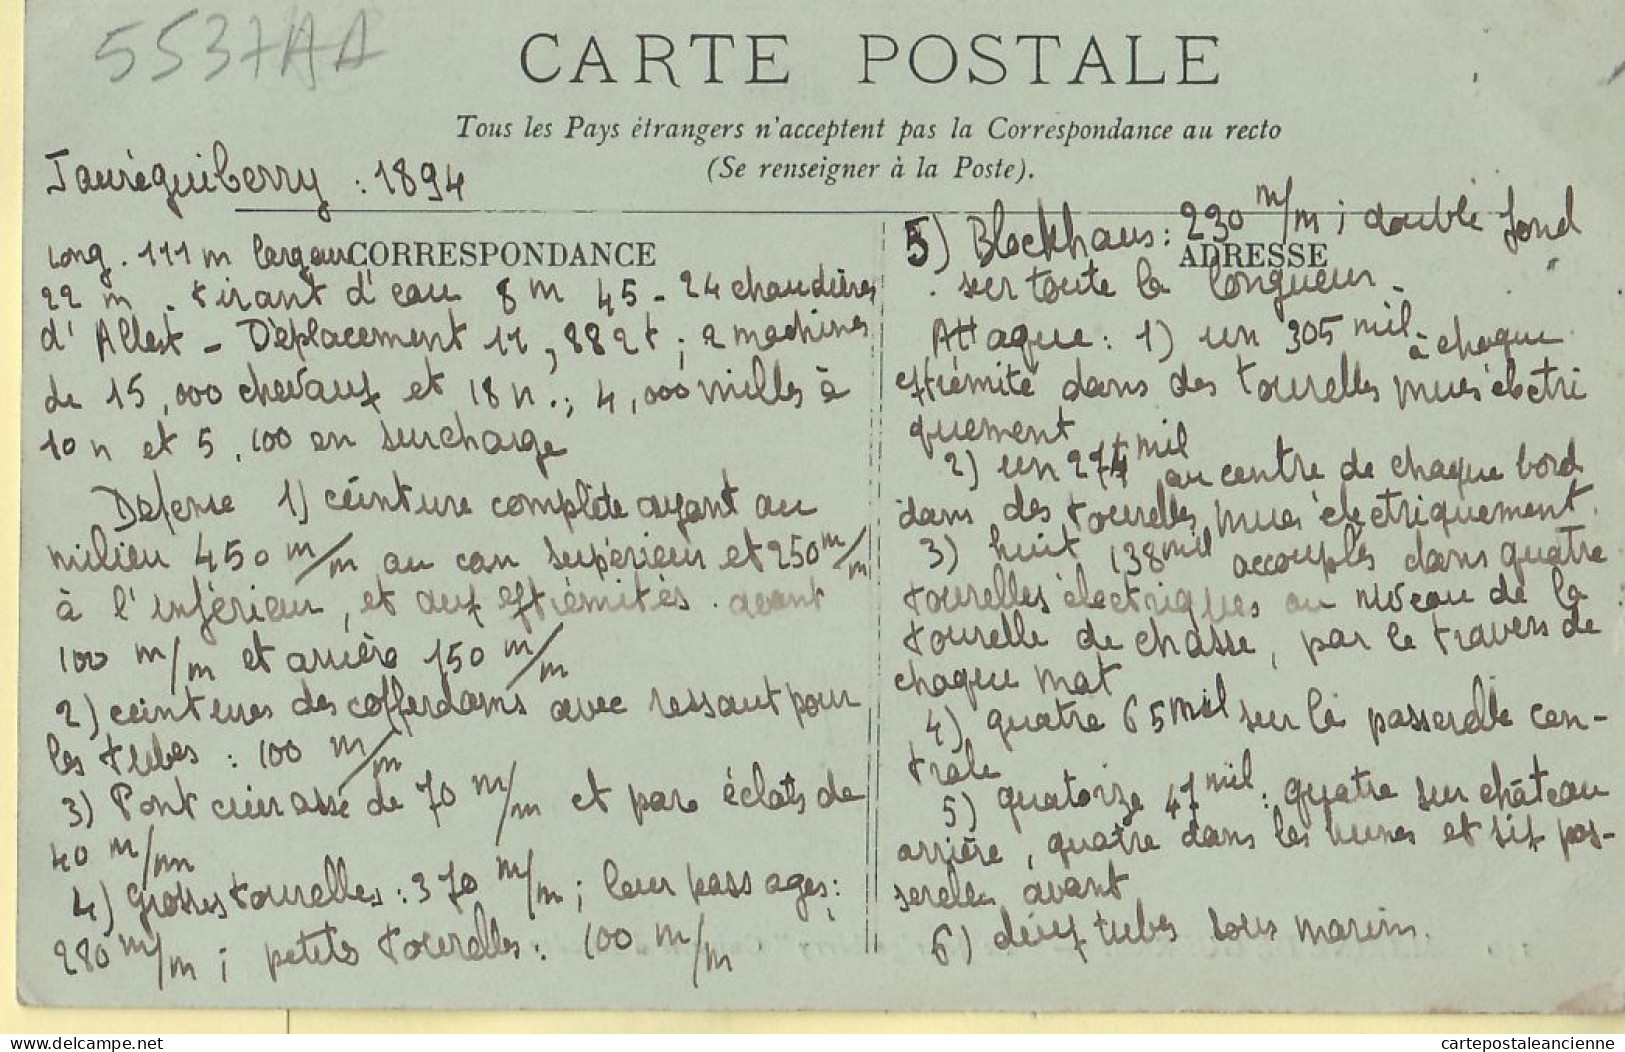 5537AA
CARTE POSTALE
Tous les Pays étrangers n'acceptent pas la Correspondance au recto
(Se renseigner à la Poste).
Jauréguiberry : 1894
CORRESPONDANCE
long. 111 m largeur
22 m. tirant d'eau 8m 45 - 24 chaudières
d'Allest - Déplacement 11,882t ; 2 machines
de 15,000 chevaux et 18 n. ; 4,000 milles à
10 n et 5,100 en surcharge
Defense 1) ceinture complète ayant au
milieu 450 m/m au can supérieur et 250 m/m
à l'inférieur, et aux extrémités. avant
100 m/m et arrière 150 m/m
2) ceintures des cofferdams avec ressaut pour
les tubes : 100 m/m
3) Pont cuirassé de 70 m/m et pare éclats de
40 m/m
4) grosses tourelles : 370 m/m ; leur passages :
280 m/m ; petites tourelles : 100 m/m
ADRESSE
5) Blockhaus : 230 m/m ; double fond
sur toute la longueur.
Attaque : 1) un 305 mil. à chaque
extrémité dans des tourelles mues électri
quement
2) un 274 mil au centre de chaque bord
dans des tourelles mues électriquement.
3) huit 138 mil accouplés dans quatre
tourelles électriques au niveau de la
tourelle de chasse, par le travers de
chaque mat
4) quatre 65 mil sur la passerelle cen-
trale
5) quatorze 47 mil. quatre sur château
arrière, quatre dans les hunes et six pas-
serelles avant
6) deux tubes sous marins.
delcampe.net
cartepostaleancienne